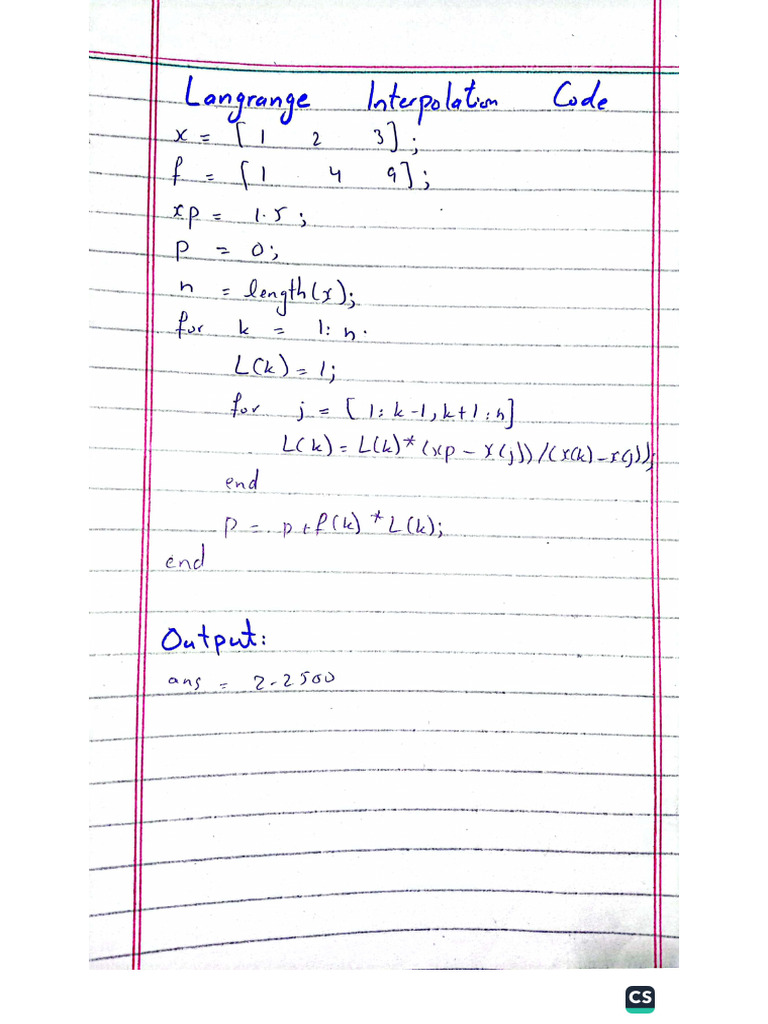 Langrange Interpolation Code
x = [1 2 3];
f = [1 4 9];
xp = 1.5;
p = 0;
n = length(x);
for k = 1:n.
L(k) = 1;
for j = [1:k-1,k+1:n]
L(k) = L(k)*(xp - x(j))/(x(k)-x(j));
end
p = p+f(k)*L(k);
end
Output:
ans = 2.2500
CS